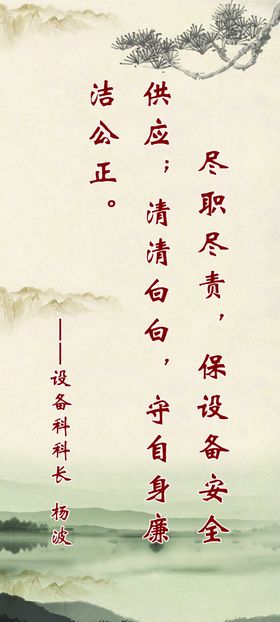 尽职尽责，保设备安全
供应；清清白白，守自身廉
洁公正。
——设备科科长 杨波